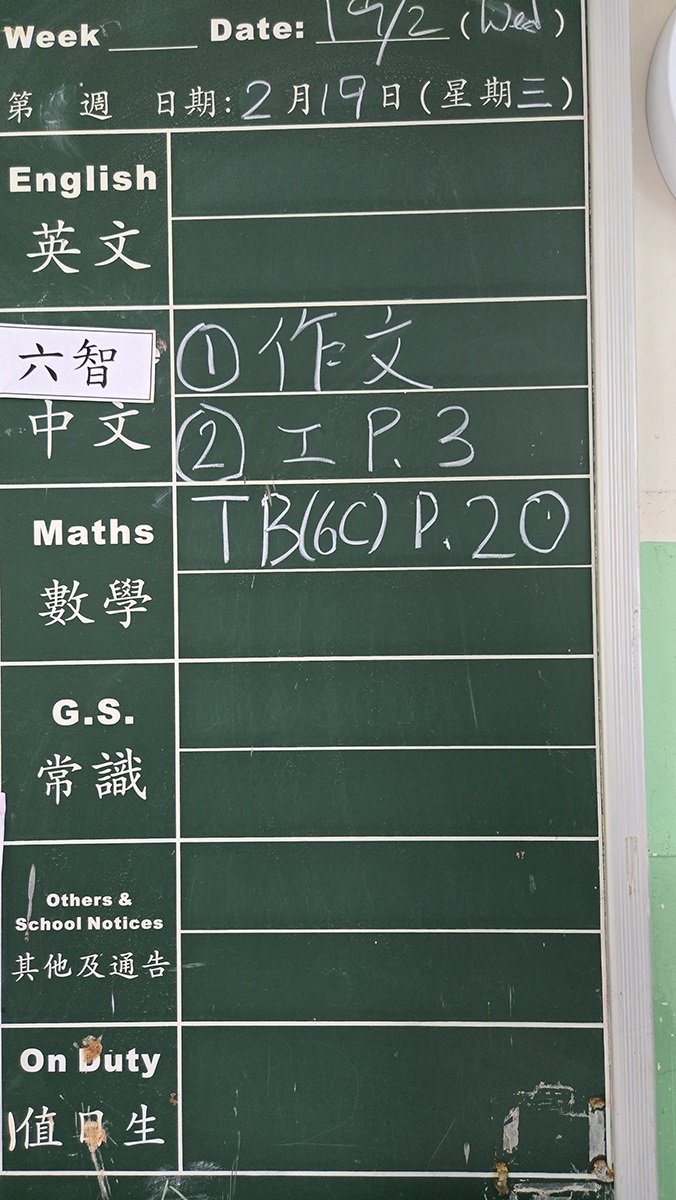 Week ____ Date: 19/2 (Wed)
第 週 日期: 2月19日(星期三)
English
英文
六智
① 作文
中文
② 工 P. 3
Maths
TB(6C) P. 20
數學
G.S.
常識
Others &
School Notices
其他及通告
On Duty
值日生